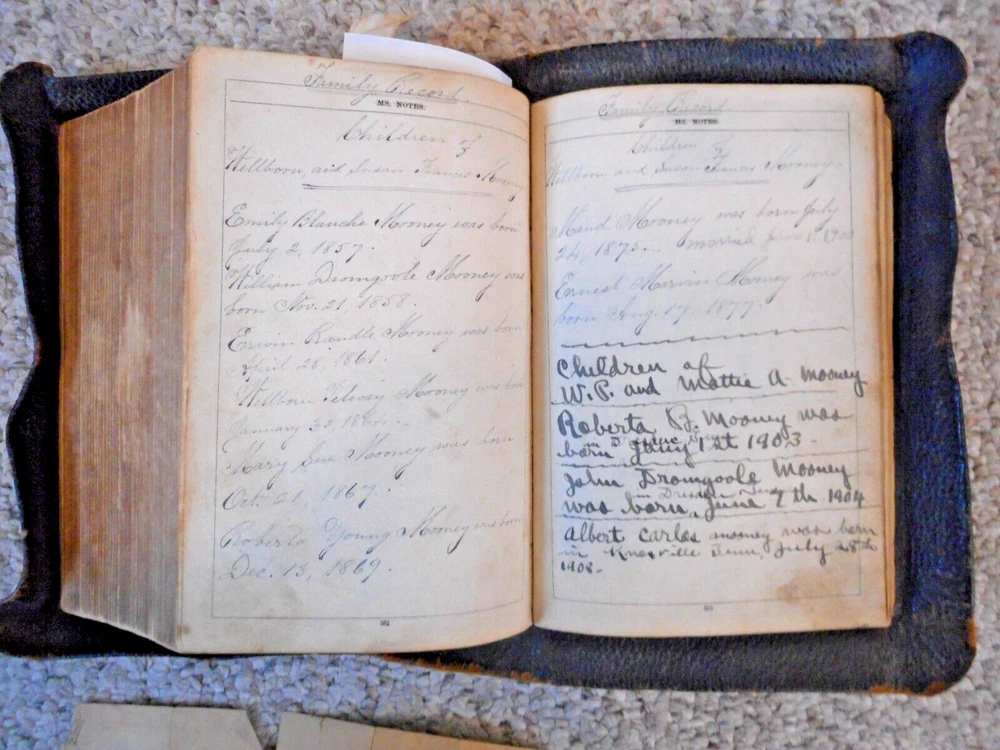 Family Record.
MS. NOTES.
Children of
Willborn and Susan Frances Mooney
Emily Blanche Mooney was born
July 2, 1857.
William Dromgoole Mooney was
born Nov. 21, 1858.
Erwin Randle Mooney was born
April 28, 1861.
Willborn Mooney was born
January 30,
Mary Sue Mooney was born
Oct. 21, 1867.
Roberta Young Mooney was born
Dec. 13, 1869.
562
Family Record
MS. NOTES.
Children of
Willborn and Susan Frances Mooney.
Maud Mooney was born July
24, 1875. married
Ernest Marvin Mooney was
born Aug. 17, 1877
Children of
W. P. and Mattie A Mooney
Roberta B. Mooney was
in
born 1st 1903-
John Dromgoole Mooney
in
was born, June 7th 1904
Albert Carlos Mooney was born
in Knoxville Tenn, July 28th
1908-